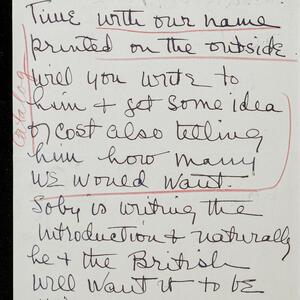 Time with our name
printed on the outside
will you write to
him + get some idea
of cost also telling
him how many
we would want.
Soby is writing the
introduction + naturally
he + the British
will want it to be
catalog